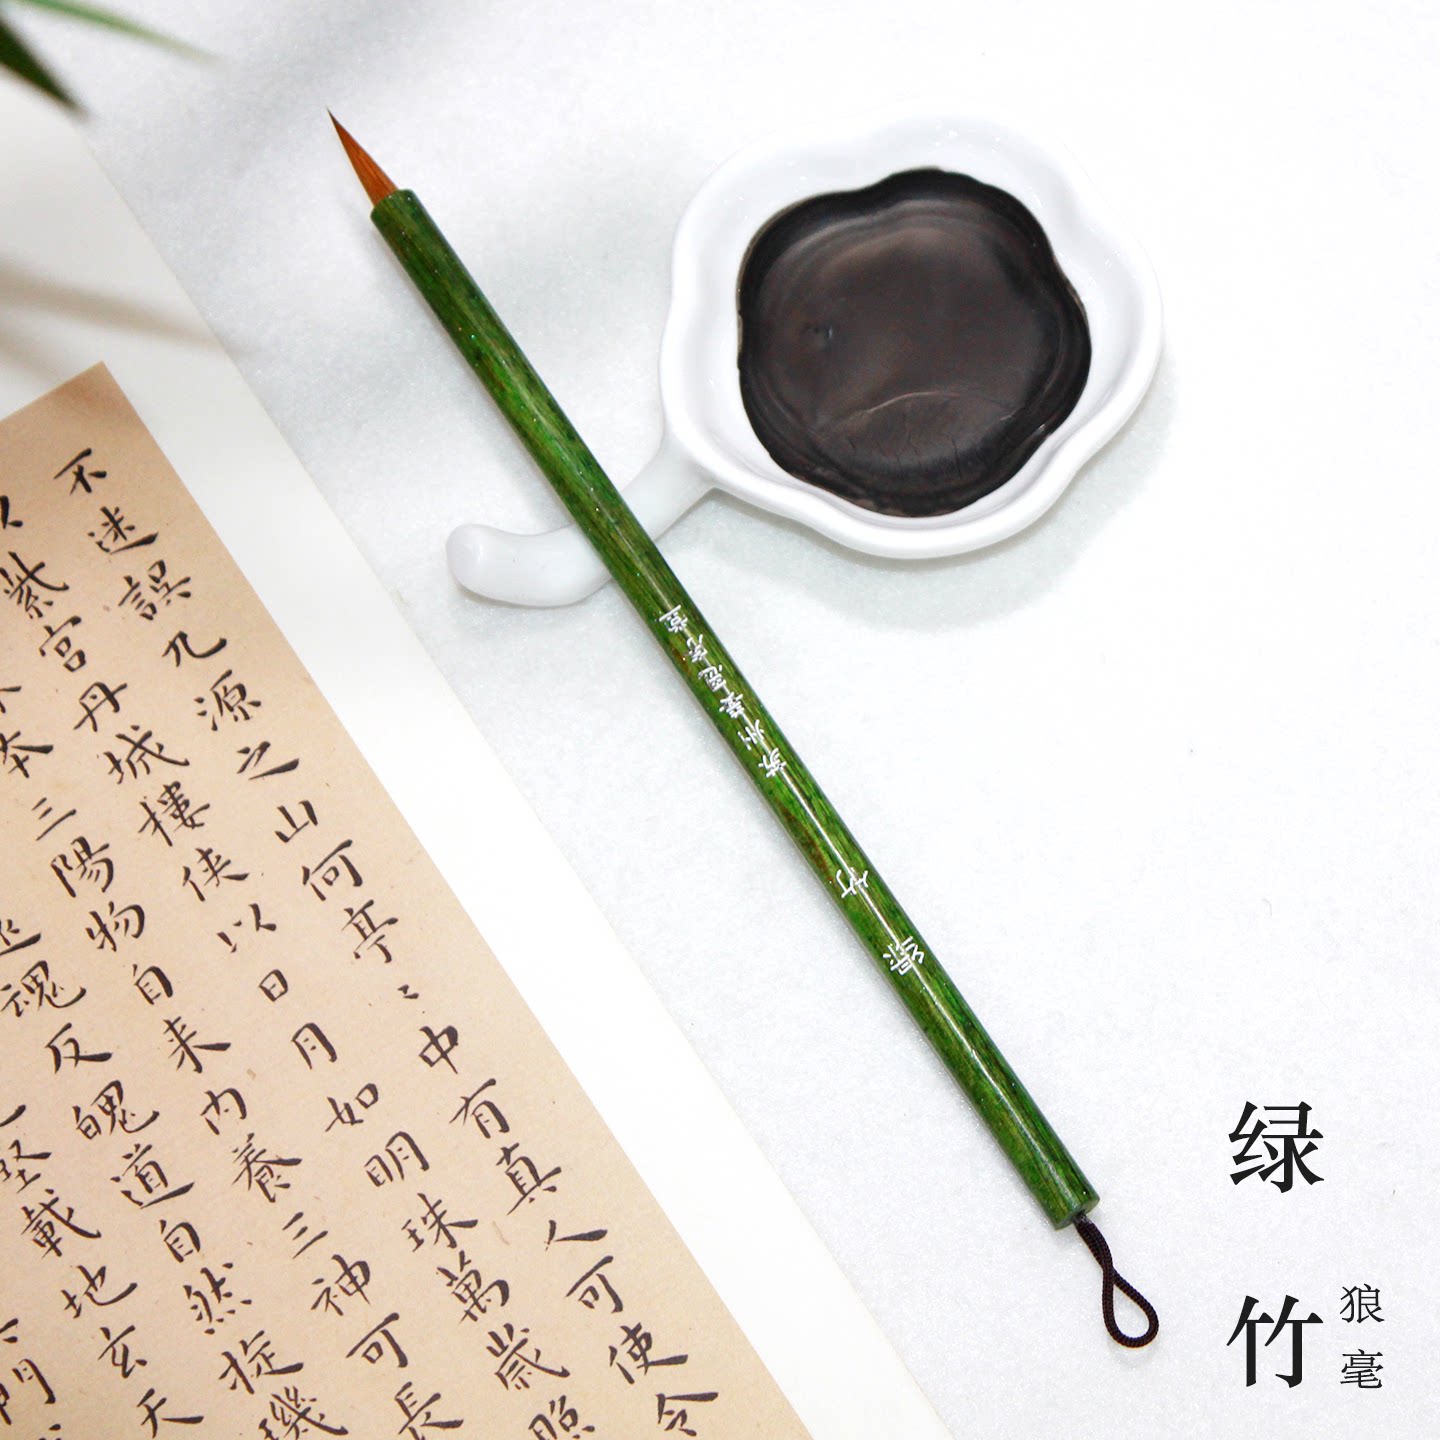 不迷誤九源之山何亭〻中有真人可使令
以紫宮丹城樓俠以日月如明珠萬歲照
本三陽物自来内養三神可長
魂反魄道自然旋璣
堅載地玄天
門
绿竹
苏州
绿竹
狼毫